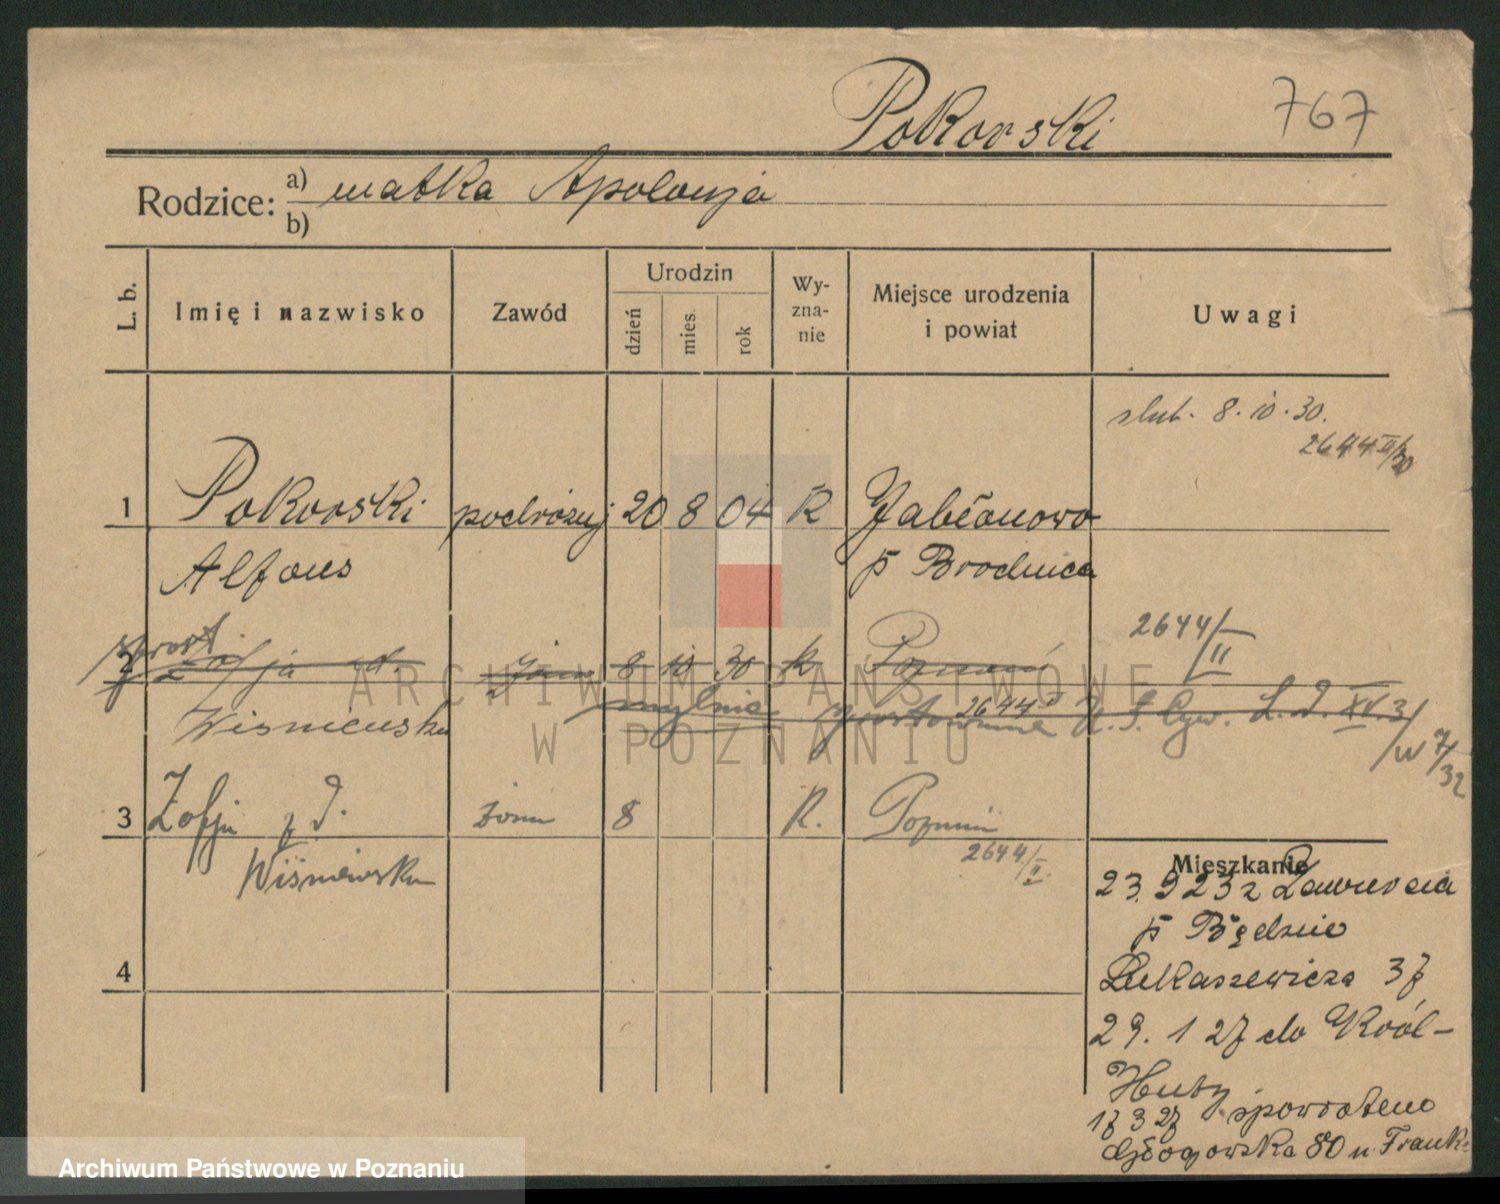 Pokorski 767
Rodzice: a) matka Apolonja
b)
L. b. Imię i nazwisko Zawód Urodzin dzień mies. rok Wy-zna-nie Miejsce urodzenia i powiat Uwagi
ślub. 8. 10. 30.
2644 II/30
1 Pokorski podróżuj 20 8 04 R Jabłonowo
Alfons p Brodnica
2644/II
2 sprost. Zofja z d. żona 8 10 30 k Poznań
Wiśniewska mylnie 2644 U. S. Cyw. L. d. XV. 3/
w 7/32
3 Zofja z d. żona 8 R. Poznań
Wiśniewska 2644/II
Mieszkanie
23. 9 23 z
p Będzin
4 Łukaszewicza 37
29. 1 27 do Król-
Huty
17 3 27 spowrotem
Głogowska 80 u Frank
ARCHIWUM PAŃSTWOWE
W POZNANIU
Archiwum Państwowe w Poznaniu